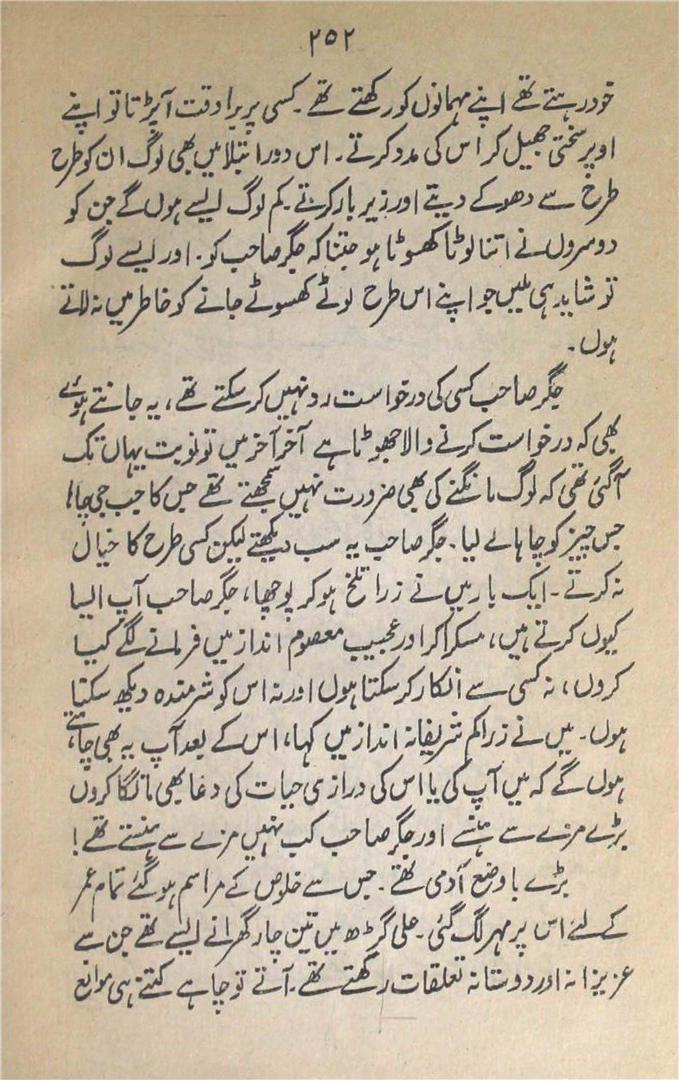 ۲۵۲
خود رہتے تھے اپنے مہمانوں کو رکھتے تھے۔ کسی پر برا وقت آپڑتا تو اپنے
اوپر سختی جھیل کر اس کی مدد کرتے۔ اس دور ابتلا میں بھی لوگ ان کو طرح
طرح سے دھوکے دیتے اور زیر بار کرتے۔ کم لوگ ایسے ہوں گے جن کو
دوسروں نے اتنا لوٹا کھسوٹا ہو جتنا کہ جگر صاحب کو۔ اور ایسے لوگ
تو شاید ہی ملیں جو اپنے اس طرح لوٹے کھسوٹے جانے کو خاطر میں نہ لاتے
ہوں۔
جگر صاحب کسی کی درخواست رد نہیں کر سکتے تھے، یہ جانتے ہوئے
بھی کہ درخواست کرنے والا جھوٹا ہے آخر آخر میں تو نوبت یہاں تک
آگئی تھی کہ لوگ مانگنے کی بھی ضرورت نہیں سمجھتے تھے جس کا جب جی چاہا
جس چیز کو چاہا لے لیا۔ جگر صاحب یہ سب دیکھتے لیکن کسی طرح کا خیال
نہ کرتے۔ ایک بار میں نے ذرا تلخ ہو کر پوچھا، جگر صاحب آپ ایسا
کیوں کرتے ہیں، مسکرا کر اور عجیب معصوم انداز میں فرمانے لگے کیا
کروں، نہ کسی سے انکار کر سکتا ہوں اور نہ اس کو شرمندہ دیکھ سکتا
ہوں۔ میں نے ذرا کم شریفانہ انداز میں کہا، اس کے بعد آپ یہ بھی چاہتے
ہوں گے کہ میں آپ کی یا اس کی درازی حیات کی دعا بھی مانگا کروں
بڑے مزے سے ہنسے اور جگر صاحب کب نہیں مزے سے ہنستے تھے!
بڑے باوضع آدمی تھے۔ جس سے خلوص کے مراسم ہو گئے تمام عمر
کے لئے اس پر مہر لگ گئی۔ علی گڑھ میں تین چار گھرانے ایسے تھے جن سے
عزیزانہ اور دوستانہ تعلقات رکھتے تھے۔ آتے تو چاہے کتنے ہی موانع